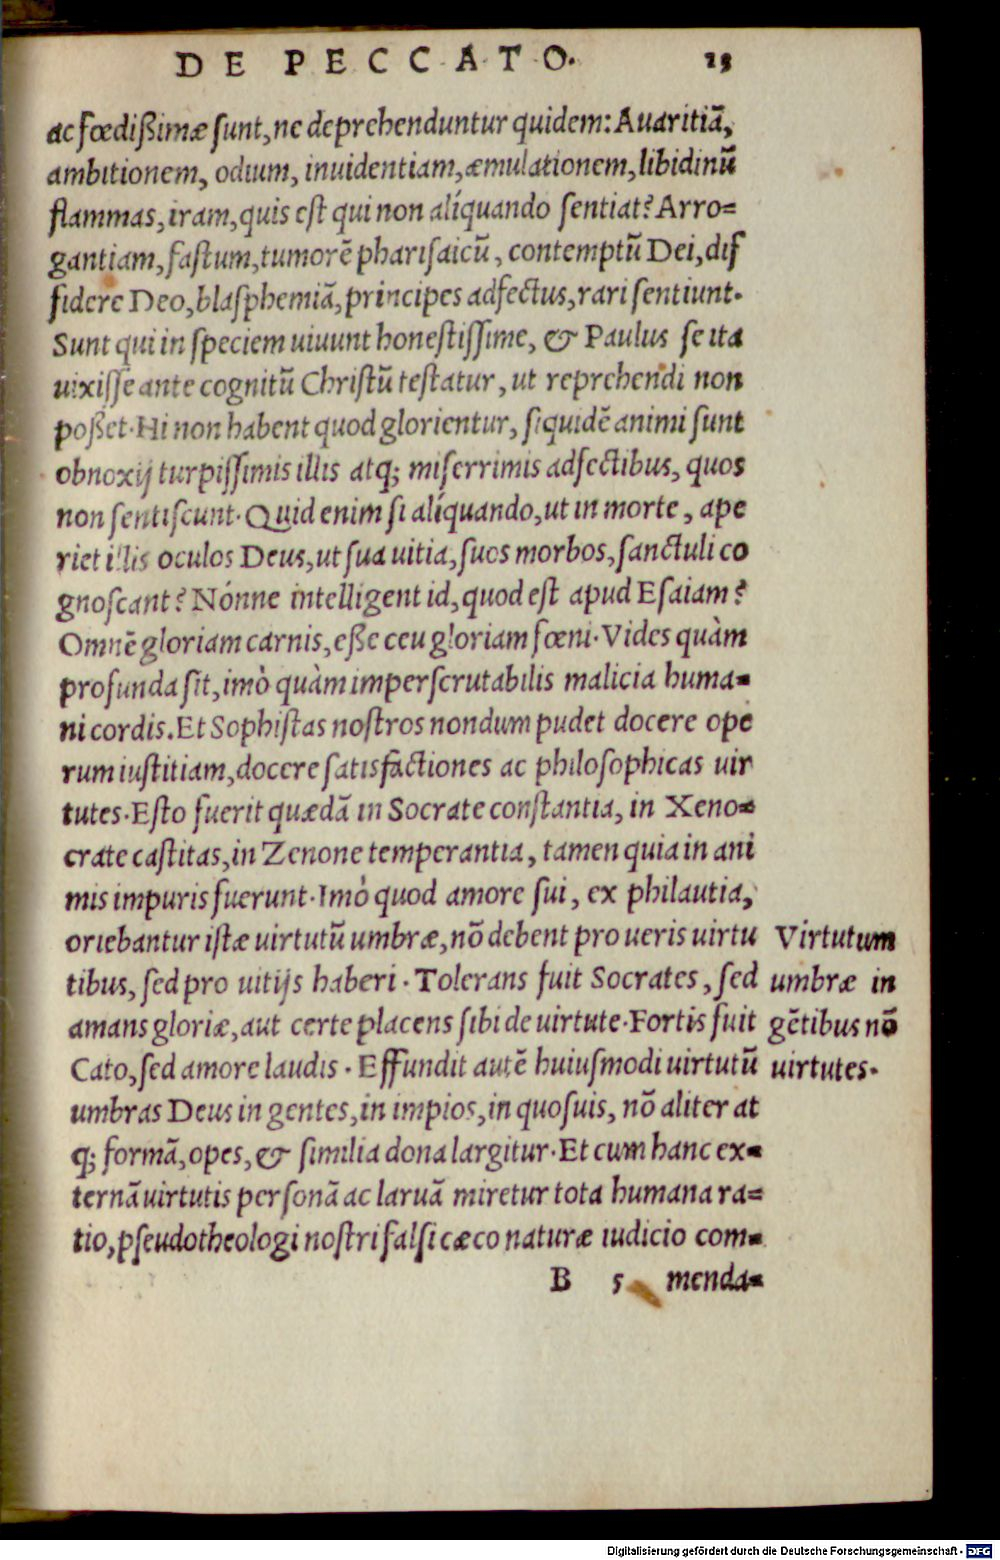 DE PECCATO. 25
ac fœdißimæ ſunt, ne deprehenduntur quidem: Auaritiã,
ambitionem, odium, inuidentiam, æmulationem, libidinũ
flammas, iram, quis eſt qui non aliquando ſentiat? Arro=
gantiam, faſtum, tumorẽ phariſaicũ, contemptũ Dei, dif
fidere Deo, blaſphemiã, principes adfectus, rari ſentiunt.
Sunt qui in ſpeciem uiuunt honeſtiſſime, & Paulus ſe ita
uixiſſe ante cognitũ Chriſtũ teſtatur, ut reprehendi non
poßet. Hi non habent quod glorientur, ſiquidẽ animi ſunt
obnoxij turpiſſimis illis atq; miſerrimis adfectibus, quos
non ſentiſcunt. Quid enim ſi aliquando, ut in morte, ape
riet illis oculos Deus, ut ſua uitia, ſuos morbos, ſanctuli co
gnoſcant? Nónne intelligent id, quod eſt apud Eſaiam?
Omnẽ gloriam carnis, eße ceu gloriam fœni. Vides quàm
profunda ſit, imò quàm imperſcrutabilis malicia huma=
ni cordis. Et Sophiſtas noſtros nondum pudet docere ope
rum iuſtitiam, docere ſatisfactiones ac philoſophicas uir
tutes. Eſto fuerit quædã in Socrate conſtantia, in Xeno=
crate caſtitas, in Zenone temperantia, tamen quia in ani
mis impuris fuerunt. Imò quod amore ſui, ex philautia,
oriebantur iſtæ uirtutũ umbræ, nõ debent pro ueris uirtu
tibus, ſed pro uitijs haberi. Tolerans fuit Socrates, ſed
amans gloriæ, aut certe placens ſibi de uirtute. Fortis fuit
Cato, ſed amore laudis. Effundit autẽ huiuſmodi uirtutũ
umbras Deus in gentes, in impios, in quoſuis, nõ aliter at
q; formã, opes, & ſimilia dona largitur. Et cum hanc ex=
ternã uirtutis perſonã ac laruã miretur tota humana ra=
tio, pſeudotheologi noſtri falſi cæco naturæ iudicio com=
B 5 menda=
Virtutum
umbræ in
gẽtibus nõ
uirtutes.
Digitalisierung gefördert durch die Deutsche Forschungsgemeinschaft - DFG